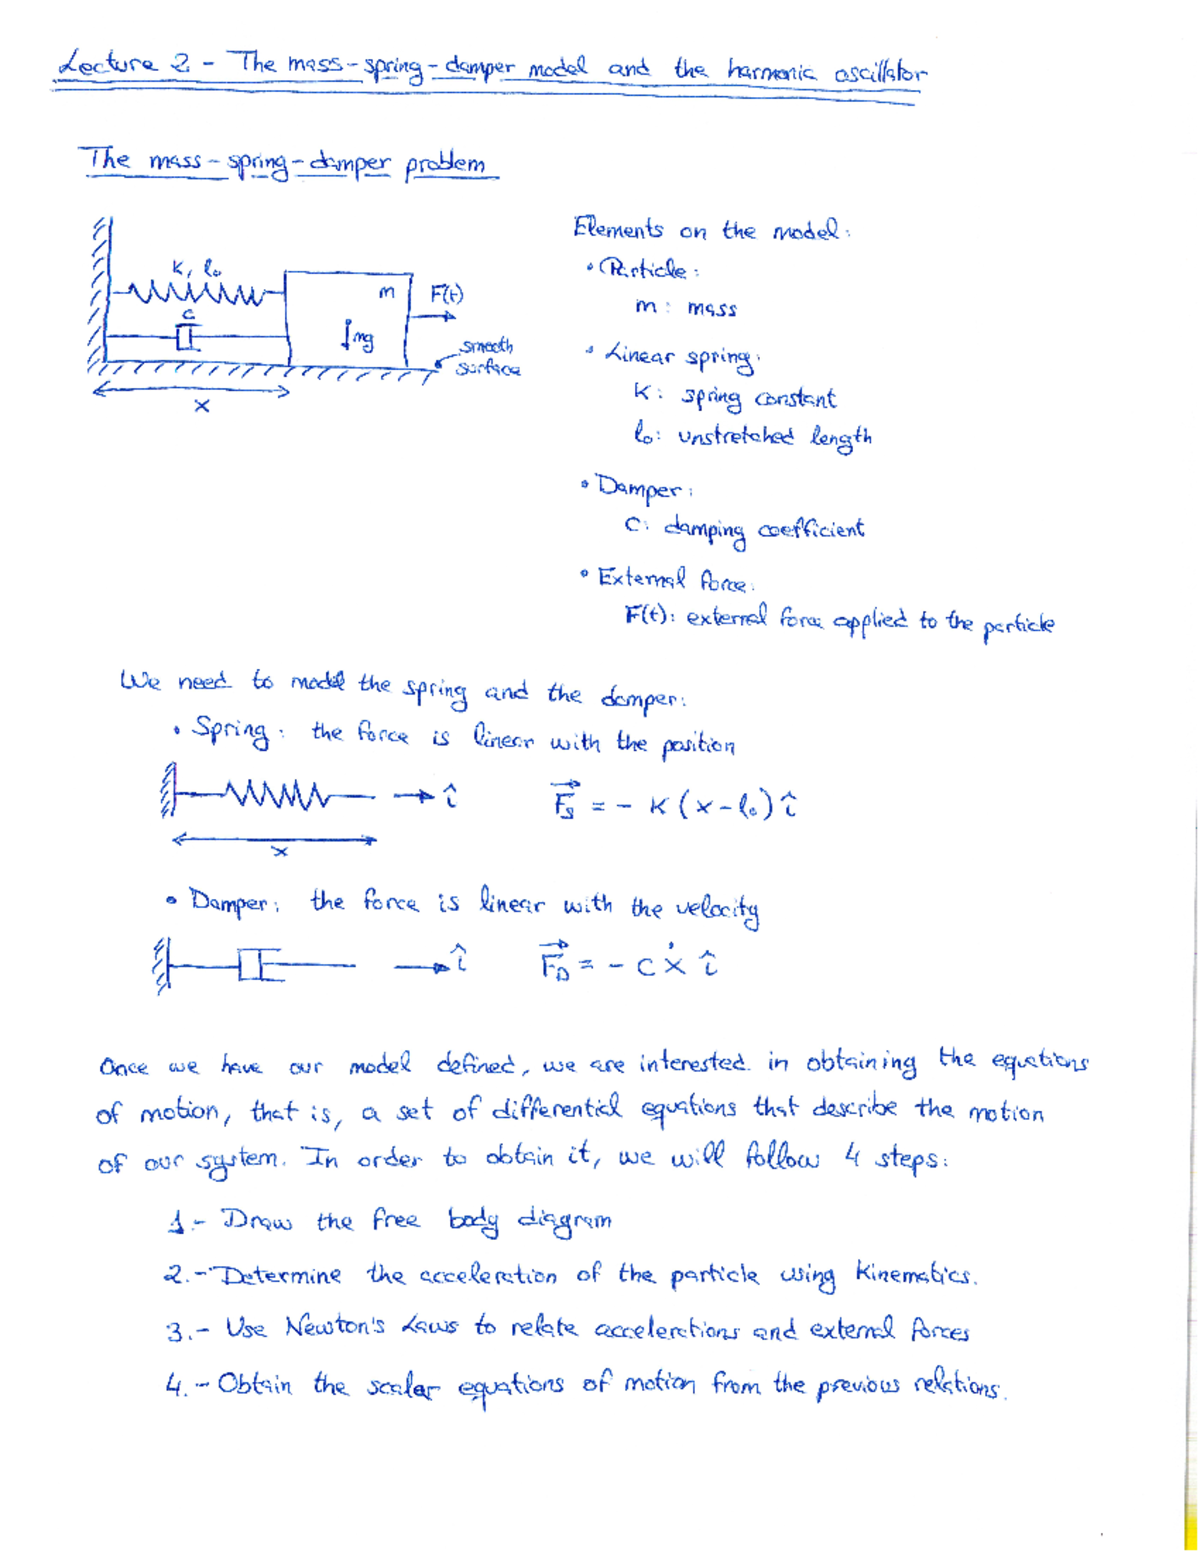 Lecture 2 - The mass-spring-damper model and the harmonic oscillator
The mass-spring-damper problem
K, l₀
c
m
F(t)
mg
smooth
surface
x
Elements on the model:
• Particle:
m: mass
• Linear spring:
K: spring constant
l₀: unstretched length
• Damper:
C: damping coefficient
• External force:
F(t): external force applied to the particle
We need to model the spring and the damper:
• Spring: the force is linear with the position
î
F⃗s = - K (x - l₀) î
x
• Damper: the force is linear with the velocity
î
F⃗D = - C ẋ î
Once we have our model defined, we are interested in obtaining the equations
of motion, that is, a set of differential equations that describe the motion
of our system. In order to obtain it, we will follow 4 steps:
1.- Draw the free body diagram
2.- Determine the acceleration of the particle using Kinematics.
3.- Use Newton's Laws to relate accelerations and external forces
4.- Obtain the scalar equations of motion from the previous relations.